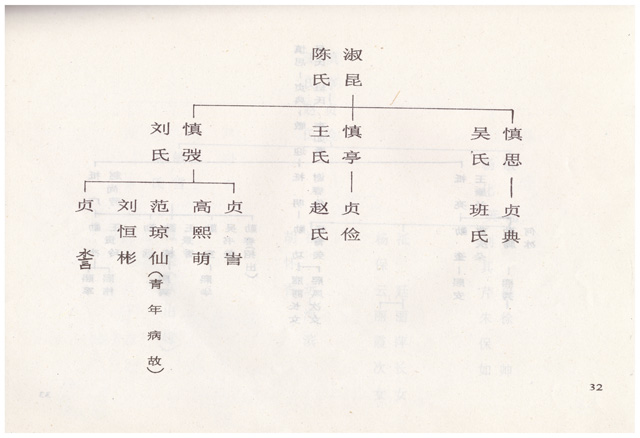 淑昆
陈氏
慎思
吴氏
慎亭
王氏
慎弢
刘氏
贞典
班氏
贞俭
赵氏
贞
高熙萌
范琼仙(青年病故)
刘恒彬
贞
32